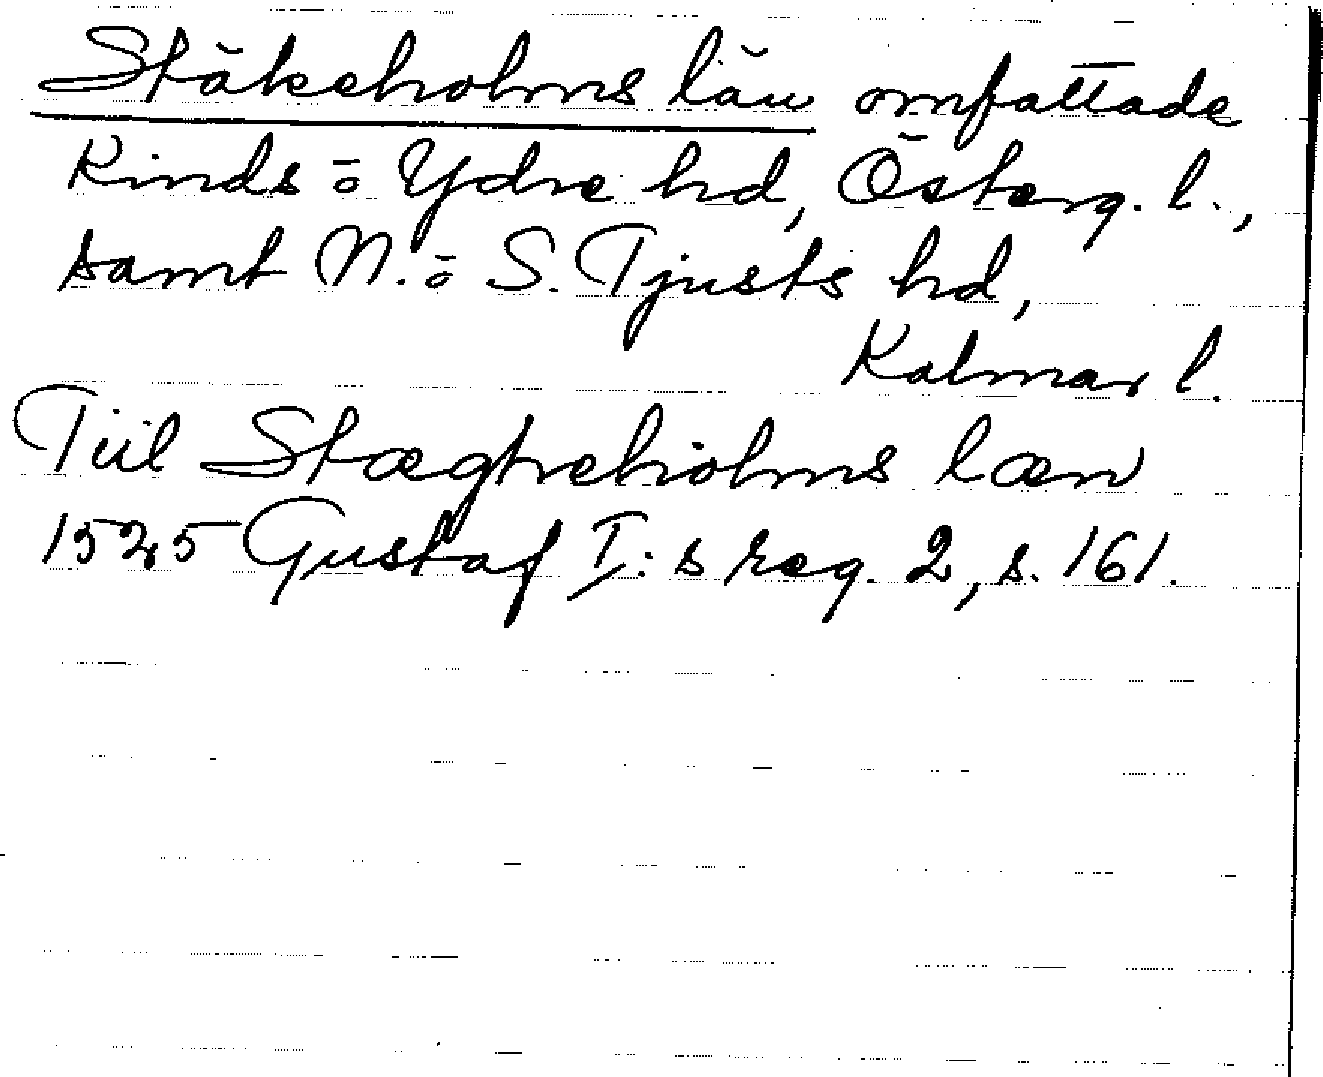 Stäkeholms län omfattade
Kinds o Ydre hd, Österg. l.,
samt N. o S. Tjusts hd,
Kalmar l.
Tiil Stægheholms læn
1525 Gustaf I:s reg. 2, s. 161.